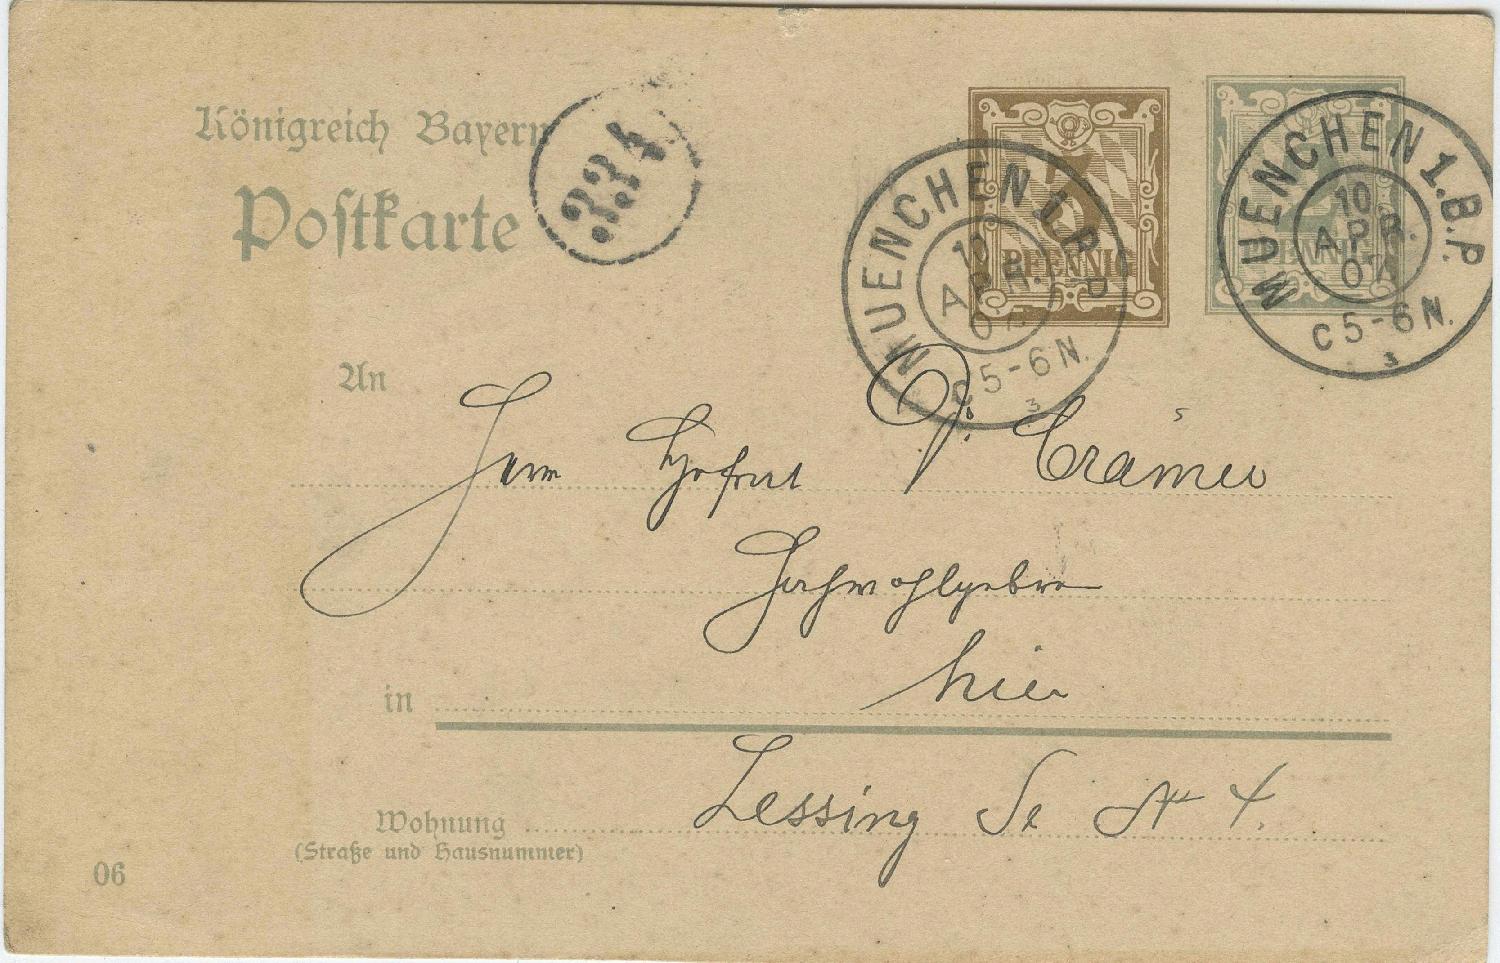 Königreich Bayern
Postkarte
334
3
PFENNIG
MUENCHEN 1. B.P.
10
APR.
07
C 5-6 N.
3
2
PFENNIG
MUENCHEN 1. B.P.
10
APR.
07
C 5-6 N.
3
An
Herrn Hofrat Cramer
Hochwohlgeboren
in hier
Lessing Str No 4.
Wohnung
(Straße und Hausnummer)
06